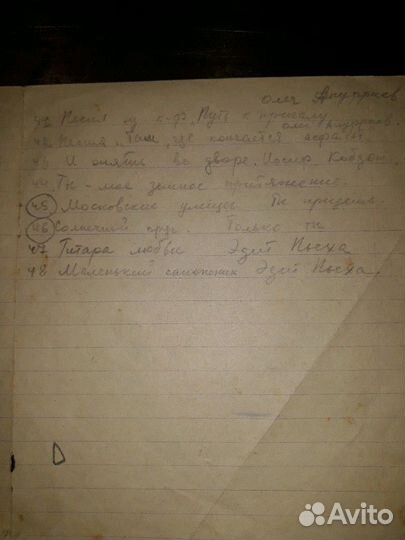 Олег Ануфриев
41 Песня из к-ф. "Путь к причалу"
42 Песня "Там, где кончается асфальт Олег Ануфриев.
43 И опять во дворе. Иосиф Кобзон.
44 Ты - моё земное притяжение.
45 Московские улицы. Ты придёшь
46 Солнечный круг. Только ты
47 Гитара любви Эдит Пьеха
48 Маленький самолётик Эдит Пьеха.
Avito